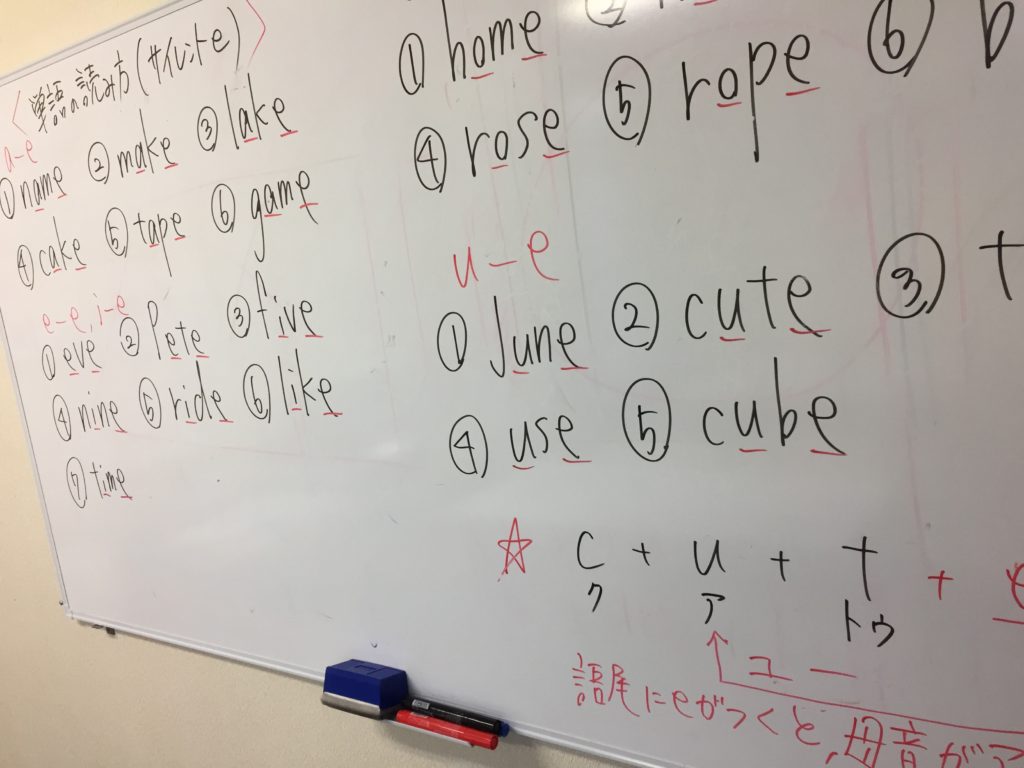 〈単語の読み方(サイレントe)〉
a-e
① name ② make ③ lake
④ cake ⑤ tape ⑥ game
e-e, i-e
① eve ② Pete ③ five
④ nine ⑤ ride ⑥ like
⑦ time
① home ②
④ rose ⑤ rope ⑥ b
u-e
① June ② cute ③ t
④ use ⑤ cube
☆ c + u + t + e
ク ア トゥ
ユー
語尾にeがつくと,母音がア